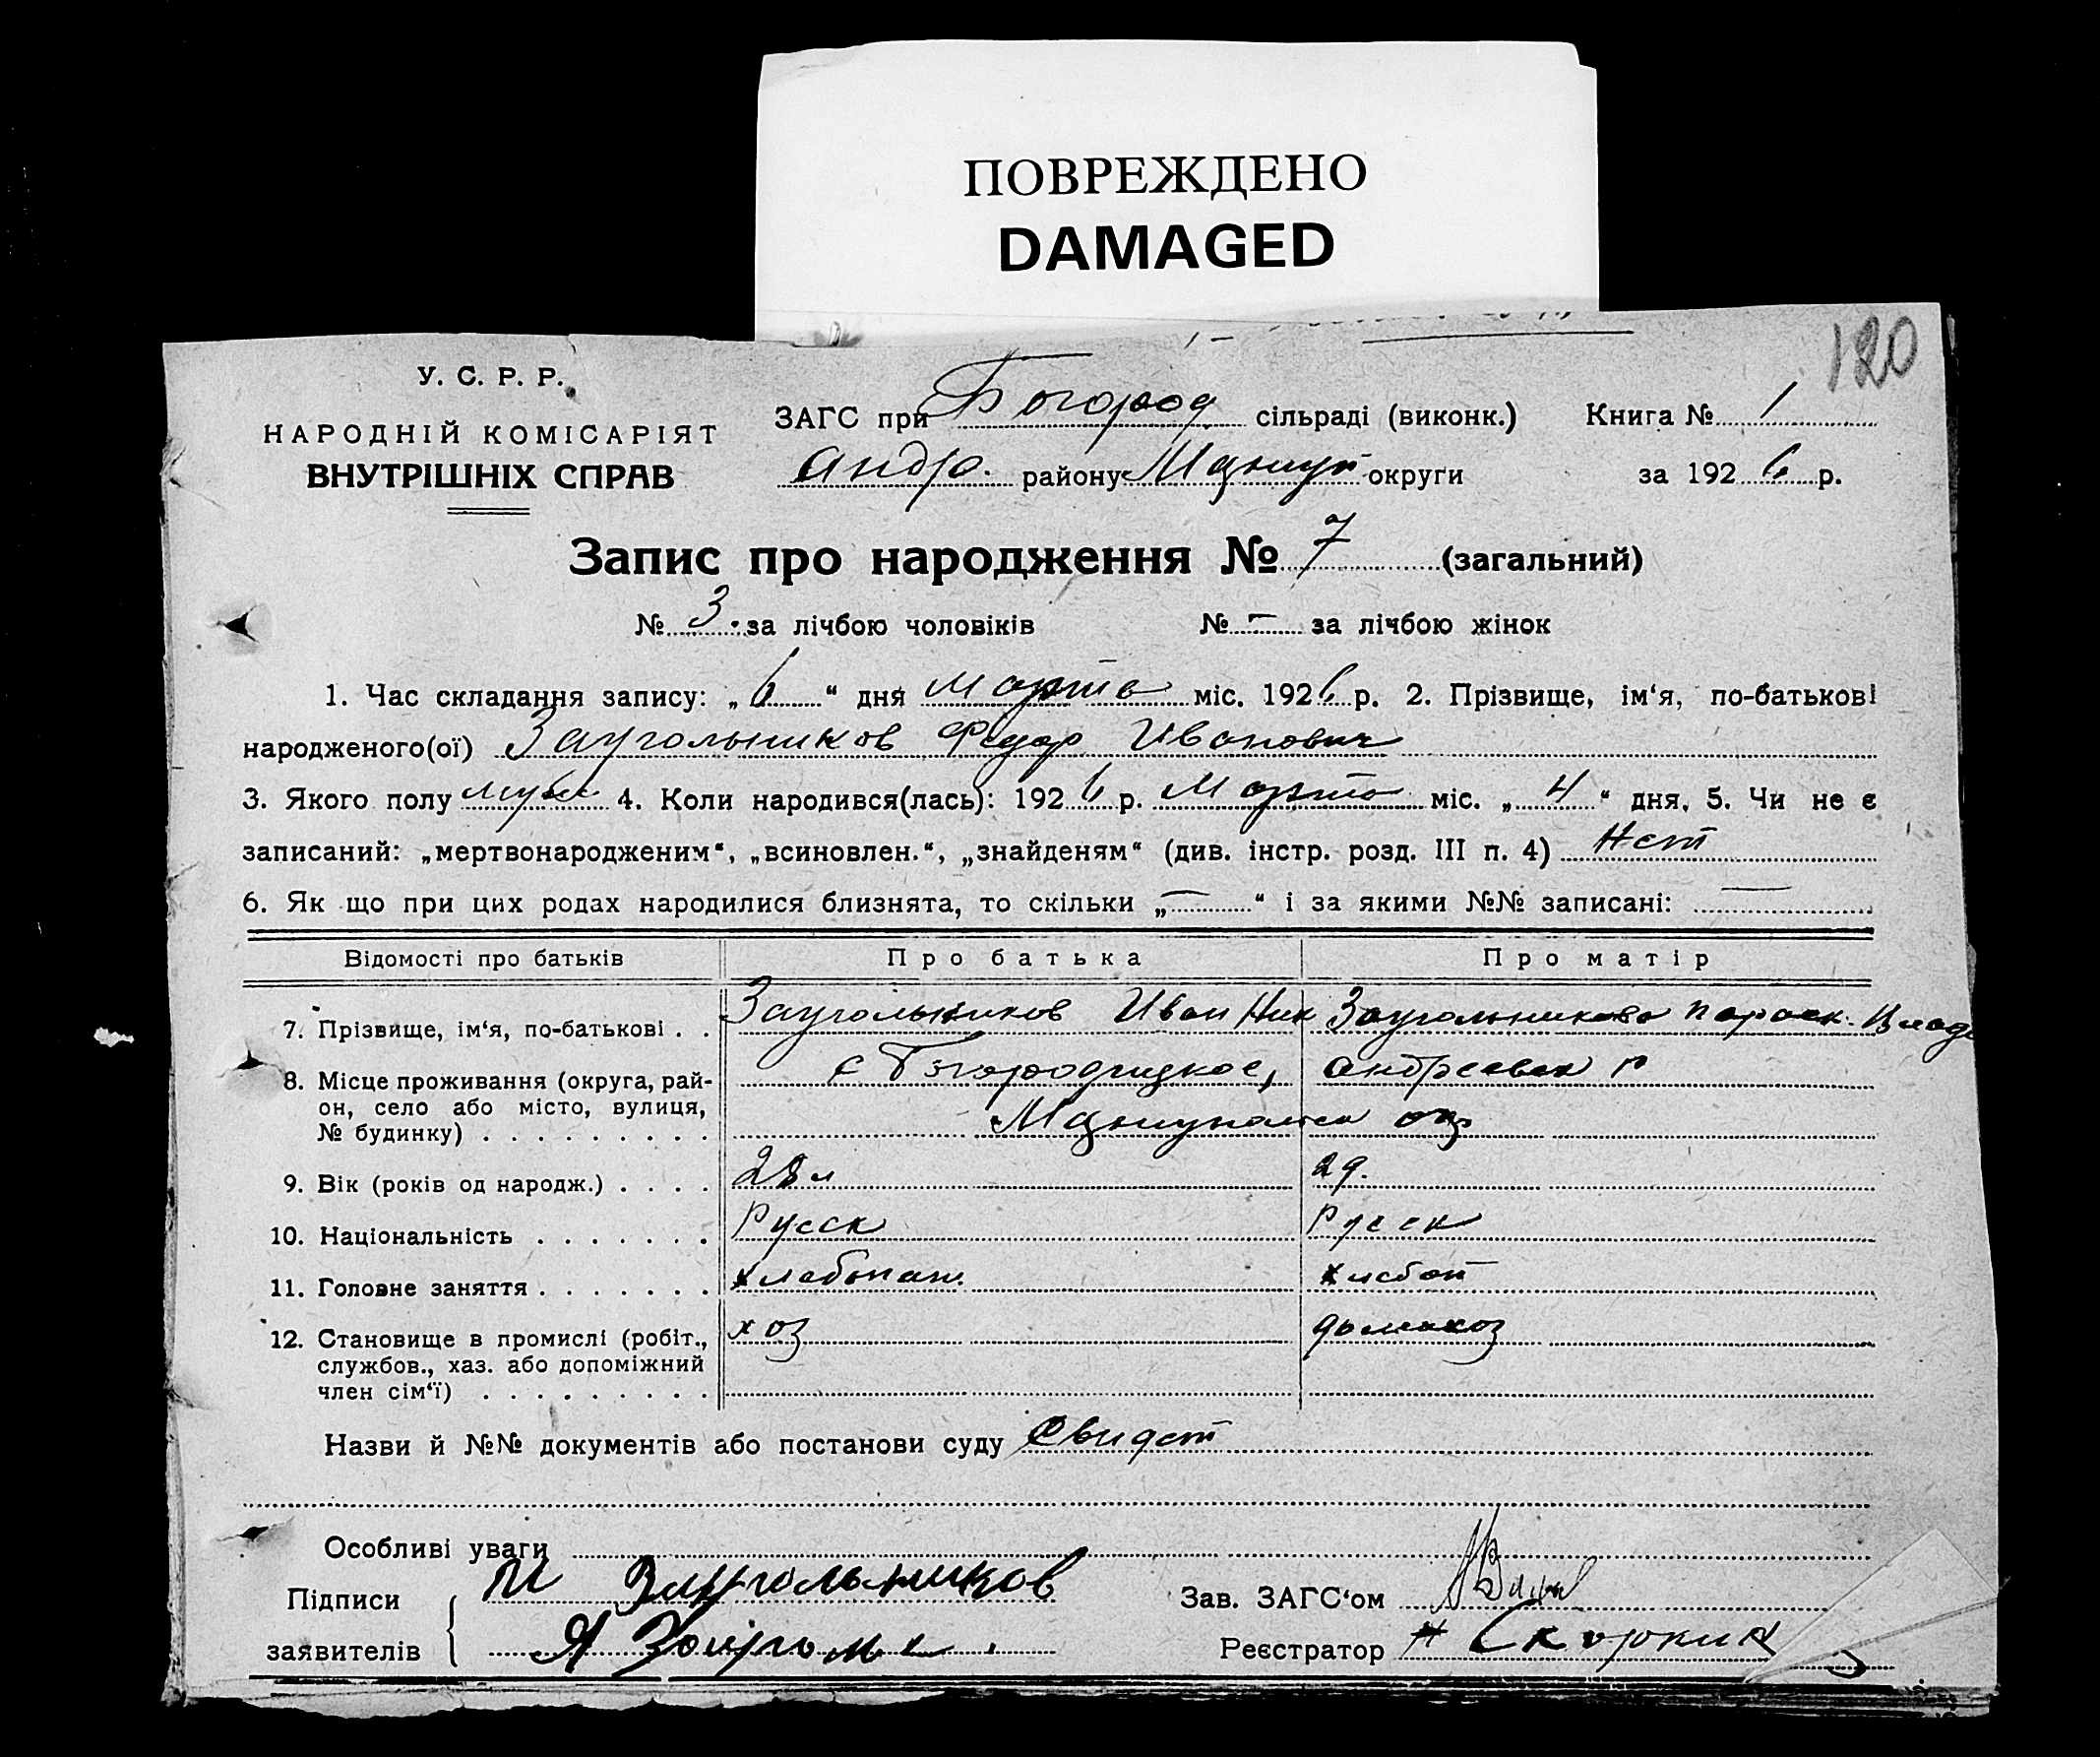 ПОВРЕЖДЕНО
DAMAGED
120
У. С. Р. Р.
НАРОДНІЙ КОМІСАРІЯТ
ВНУТРІШНІХ СПРАВ
ЗАГС при Богород сільраді (виконк.) Книга № 1
Андр. району округи за 1926 р.
Запис про народження № 7 (загальний)
№ 3. за лічбою чоловіків № – за лічбою жінок
1. Час складання запису: „6“ дня марта міс. 1926 р. 2. Прізвище, ім‘я, по-батькові
народженого(ої) Заугольников Федор Иванович
3. Якого полу муж 4. Коли народився(лась): 1926 р. Марта міс. „4“ дня. 5. Чи не є
записаний: „мертвонародженим“, „всиновлен.“, „знайденям“ (див. інстр. розд. III п. 4) Нет
6. Як що при цих родах народилися близнята, то скільки „—“ і за якими №№ записані: —
Відомості про батьків Про батька Про матір
7. Прізвище, ім‘я, по-батькові . . Заугольников Иван Ник Заугольникова Параск.
8. Місце проживання (округа, рай- с Богородицкое, Андреевск р
он, село або місто, вулиця,
№ будинку) . . . . . . . . . окр
9. Вік (років од народж.) . . . . 28 л 29.
10. Національність . . . . . . . Русск Русск
11. Головне заняття . . . . . . . хлебопаш. хлебоп
12. Становище в промислі (робіт., хоз домохоз
службов., хаз. або допоміжний
член сім‘ї) . . . . . . . . .
Назви й №№ документів або постанови суду Свидет
Особливі уваги
Підписи Заугольников Зав. ЗАГС‘ом
заявителів Реєстратор Н Скоркин